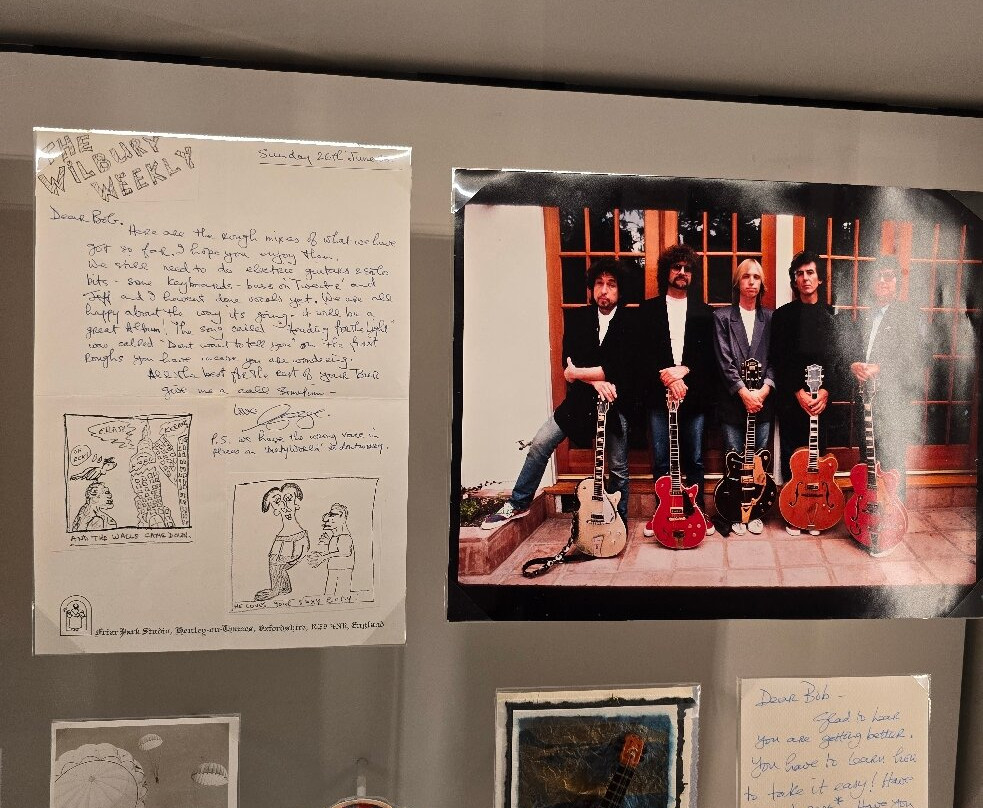 THE
WILBURY
WEEKLY
Sunday 26th June
Dear Bob.
Here are the rough mixes of what we have
got so far, I hope you enjoy them.
We still need to do electric guitars & solo
bits - some keyboards - bass on Tweeter and
Jeff and I havent done vocals yet. We are all
happy about the way it's going. it will be a
great Album! The song called "Heading for the Light"
was called "Dont want to tell you" on the first
roughs you have incase you are wondering.
All the best for the rest of your Tour
give me a call sometime -
Love George.
P.S. we have the wrong voice in
places on 'Dirty World' at
AND THE WALLS CAME DOWN.
HE LOVES YOUR SEXY BODY
Friar Park Studio, Henley-on-Thames, Oxfordshire, England
Dear Bob -
Glad to hear
you are getting better.
You have to learn how
to take it easy! Have
Have you